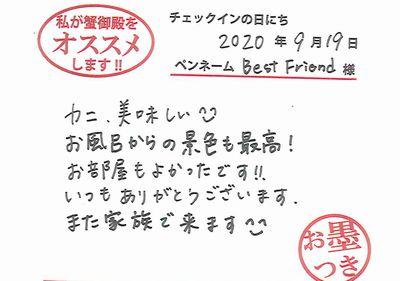 私が蟹御殿を
オススメ
します!!
チェックインの日にち
2020 年 9 月 19 日
ペンネーム Best Friend 様
カニ、美味しい
お風呂からの景色も最高!
お部屋もよかったです!!
いつもありがとうございます.
また家族で来ます
お墨
つき